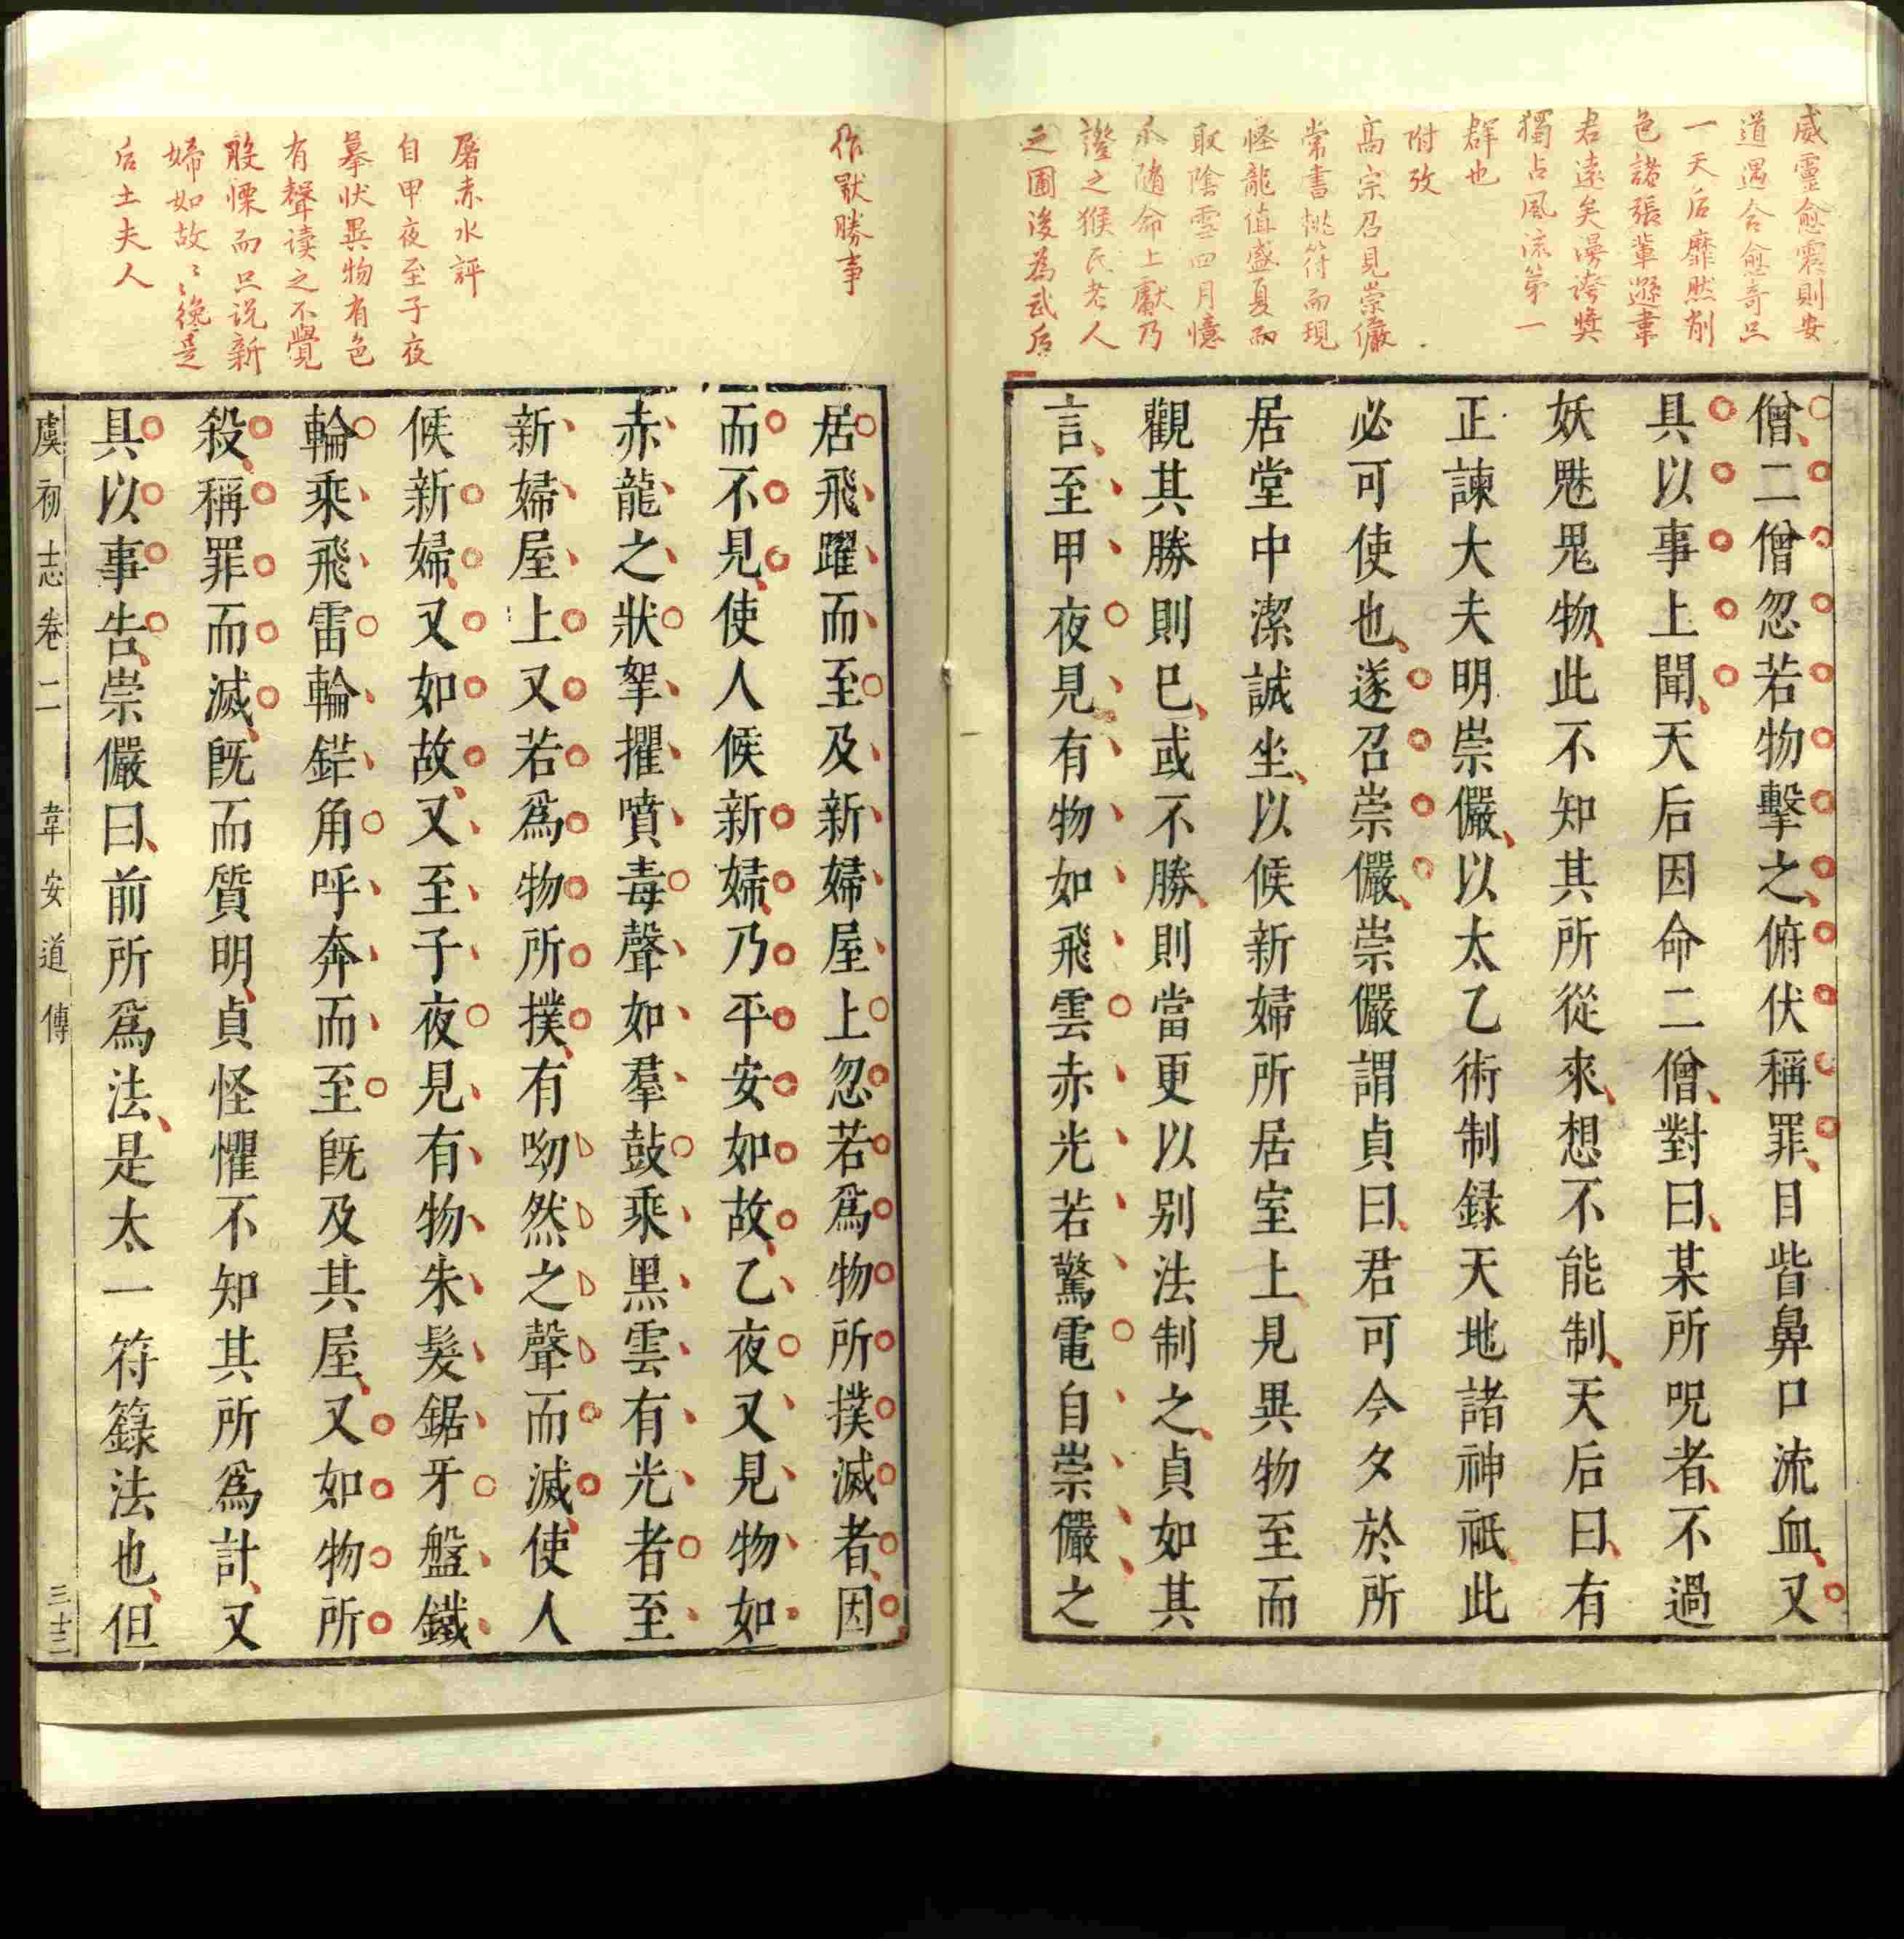 威靈愈震則安
道遇合愈奇只
一天后靡然削
色諸張輩遜韋
君遠矣漫誇奬
獨占風流第一
群也
附攷
高宗召見崇儼
常書桃符而現
怪龍值盛夏而
取陰雪四月憶
瓜隨命上獻乃
證之猴氏老人
之圃後為武后
僧二僧忽若物擊之俯伏稱罪目眥鼻口流血又
具以事上聞天后因命二僧對曰某所呪者不過
妖魅鬼物此不知其所從來想不能制天后曰有
正諫大夫明崇儼以太乙術制録天地諸神祇此
必可使也遂召崇儼崇儼謂貞曰君可今夕於所
居堂中潔誠坐以候新婦所居室上見異物至而
觀其勝則已或不勝則當更以别法制之貞如其
言至甲夜見有物如飛雲赤光若驚電自崇儼之
作厭勝事
屠赤水評
自甲夜至子夜
摹狀異物有色
有聲读之不覺
股慄而只说新
婦如故〻〻纔是
后土夫人
居飛躍而至及新婦屋上忽若爲物所撲滅者因
而不見使人候新婦乃平安如故乙夜又見物如
赤龍之狀拏攫噴毒聲如羣鼓乘黑雲有光者至
新婦屋上又若爲物所撲有呦然之聲而滅使人
候新婦又如故又至子夜見有物朱髪鋸牙盤鐵
輪乘飛雷輪鋩角呼奔而至旣及其屋又如物所
殺稱罪而滅旣而質明貞怪懼不知其所爲計又
具以事告崇儼曰前所爲法是太一符籙法也但
虞初志卷二　韋安道傳　三十三